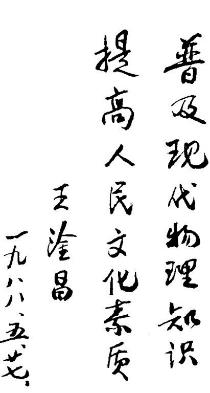 普及现代物理知识
提高人民文化素质
王淦昌
一九八八、五、廿七、